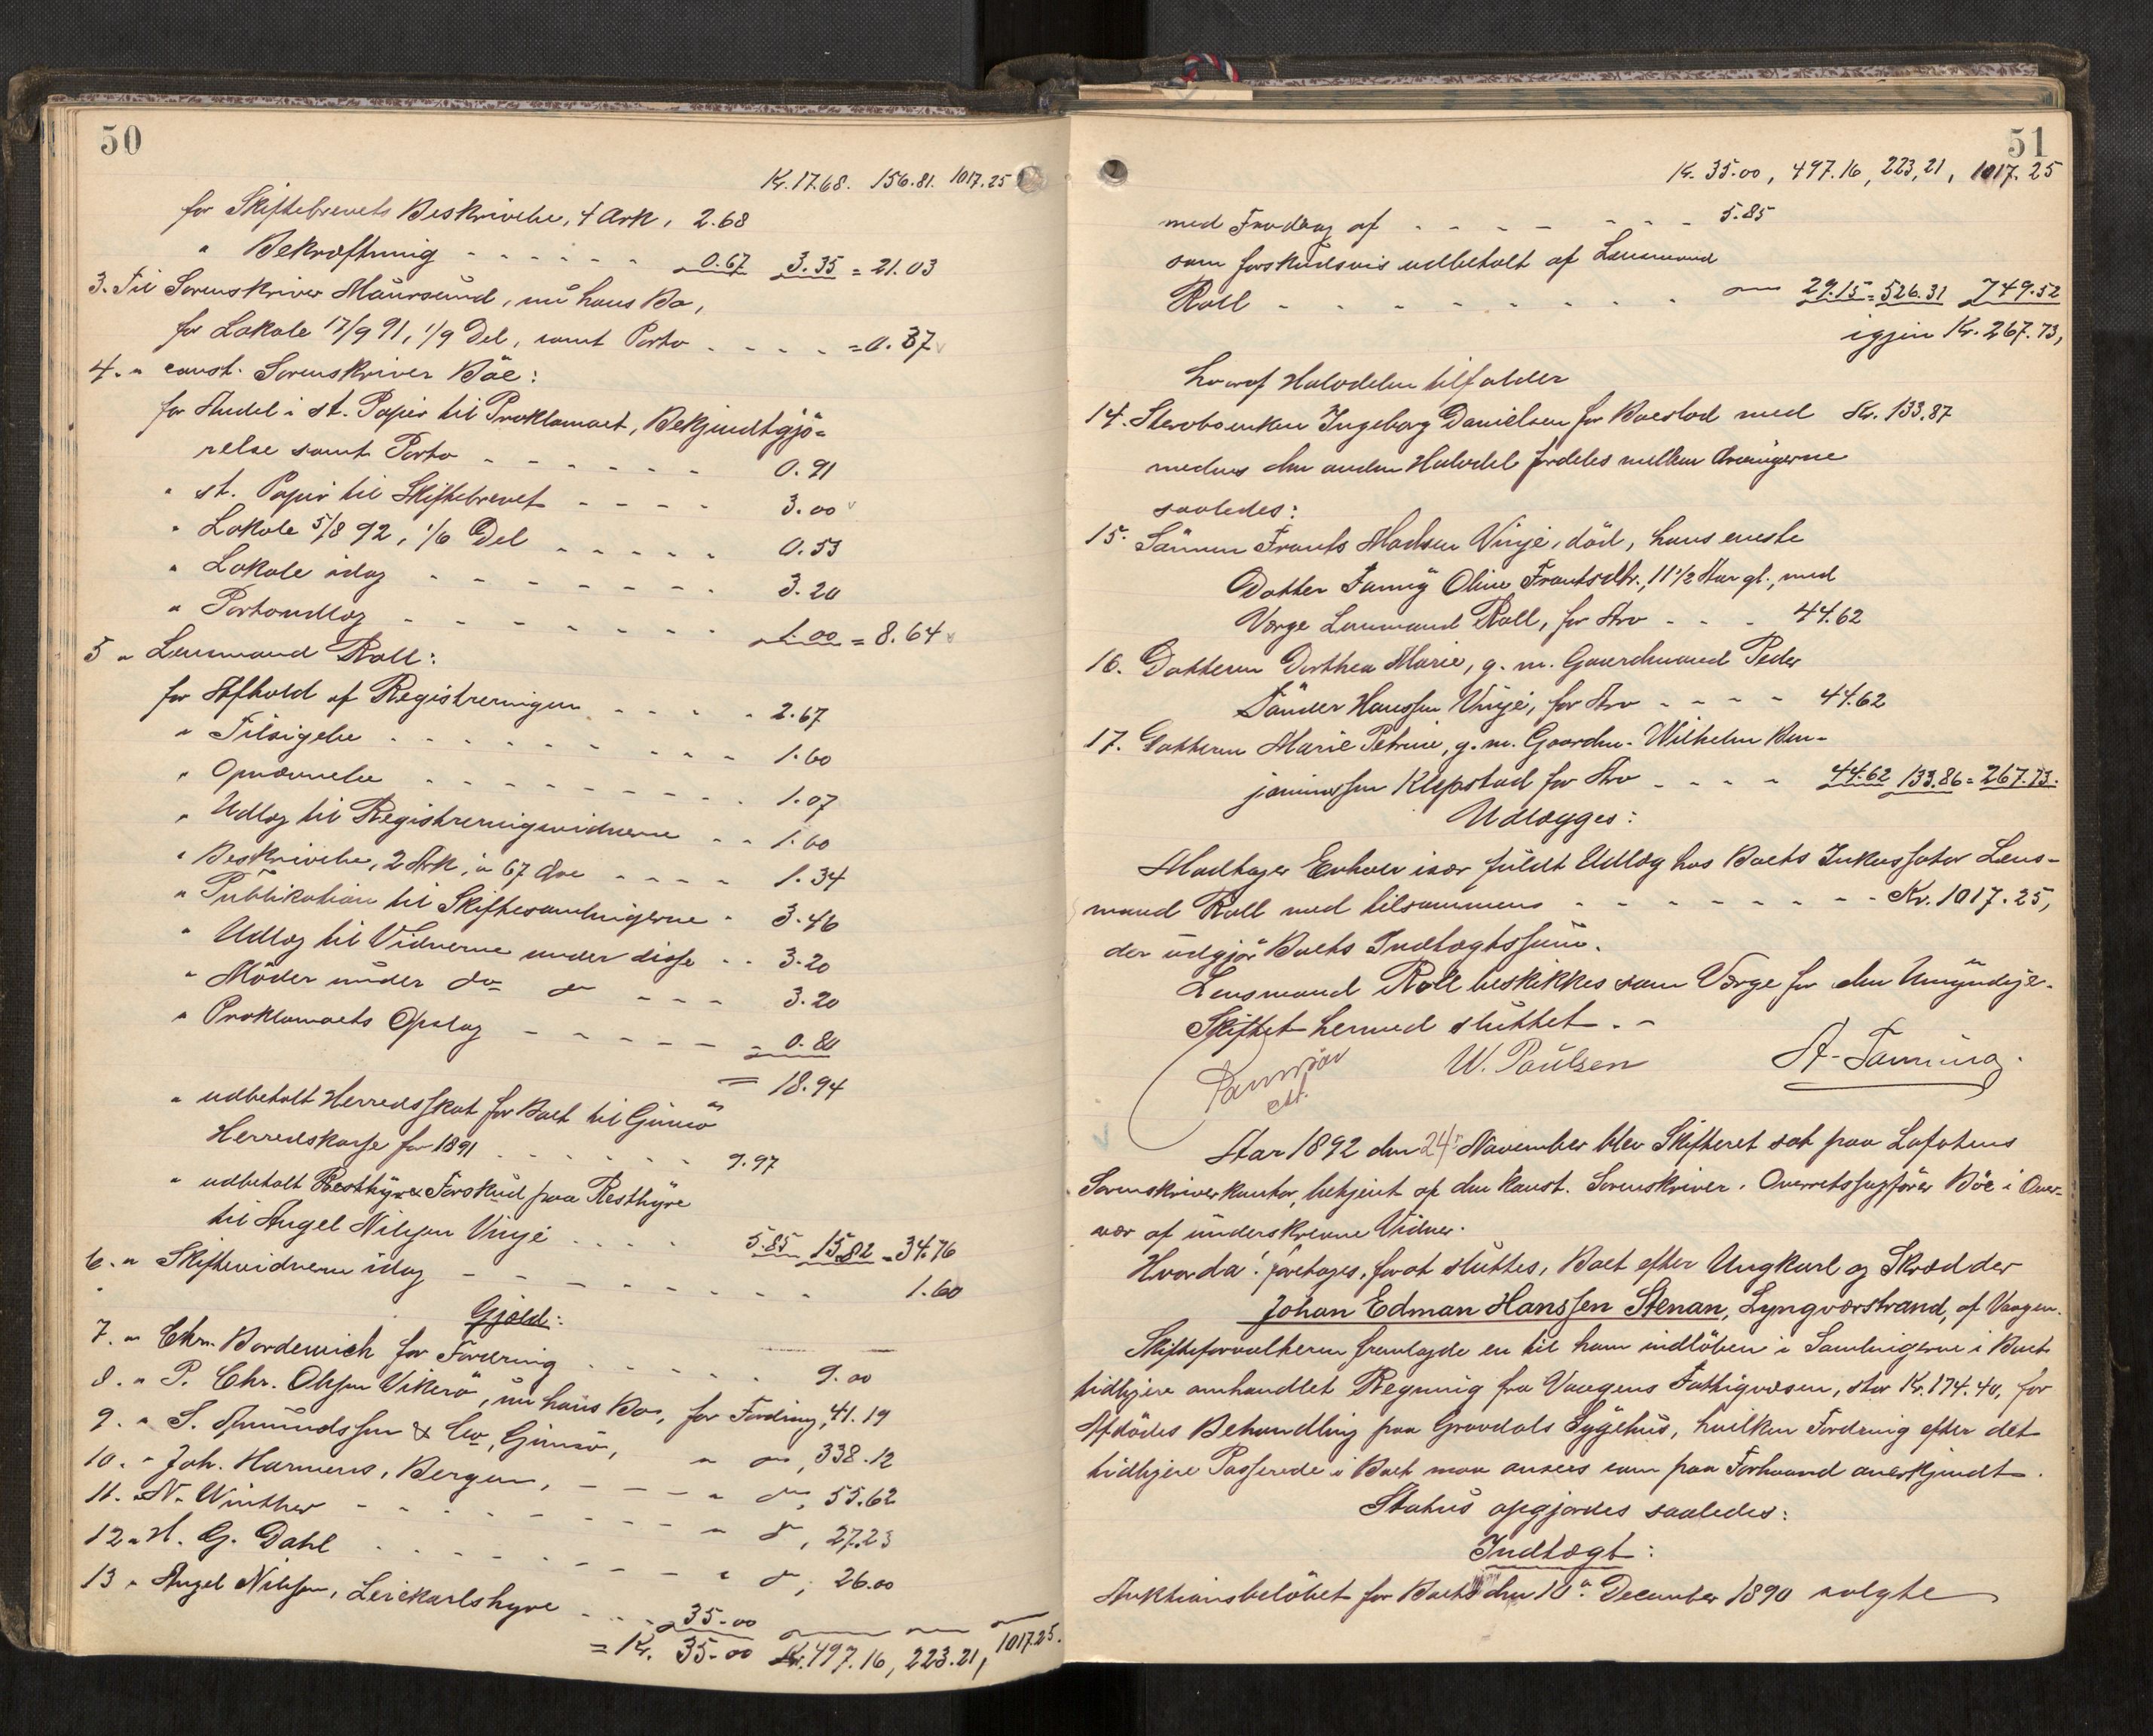 50
Kr. 17.68. 156.81. 1017.25
for Skiftebrevets Beskrivelse, 4 Ark, 2.68
" Bekræftning - - - - - - 0.67 3.35 = 21.03
3. Til Sorenskriver Maursund, nu hans Bo,
for Lokale 17/9 91, 1/9 Del, samt Porto - - - - = 0.37
4. " const. Sorenskriver Böe:
for Andel i st. Papir til Proklamaet, Bekjendtgjö=
relse samt Porto - - - - - - 0.91
" st. Papir til Skiftebrevet - - - - 3.00
" Lokale 5/8 92, 1/6 Del - - - - - 0.53
" Lokale idag - - - - - - - 3.20
" Portoudlæg - - - - - - - 1.00 = 8.64
5 " Lensmand Roll:
for Afhold af Registreringen - - - - 2.67
" Tilsigelse - - - - - - - - 1.60
" Opnævnelse - - - - - - - 1.07
" Udlæg til Registreringsvidnerne - - 1.60
" Beskrivelse, 2 Ark, à 67 Øre - - - - 1.34
" Publikation til Skiftesamlingerne - 3.46
" Udlæg til Vidnerne under disse - - 3.20
" Möder under do do - - - 3.20
" Proklamaets Opslag - - - - - 0.80
= 18.94
" udbetalt Herredsskat for Boet til Gimsö
Herredskasse for 1891 - - - - - - 9.97
" udbetalt Forskud paa Resthyre
til Angel Nilssen Vinje - - - - 5.85 15.82 = 34.76
6. " Skiftevidnerne idag - - - - - - - 1.60
Gjæld:
7. " Chr. Bordewich for Fordring - - - - 9.00
8. " P. Chr. Olssen Vikerö, nu hans Bo, for Fordring, 41.19
9. " S. Amundssen & Co, Gimsö, " do, 338.12
10. " Joh. Harmens, Bergen, - - - " do, 55.62
11. " N. Winther - - - - - - " do, 27.23
12 " H. G. Dahl - - - - - - " do, 26.00
13 " Angel Nilssen, Leiekarlshyre - - - 35.00
= Kr. 35.00 Kr. 497.16, 223.21, 1017.25.
51
Kr. 35.00, 497.16, 223,21, 1017.25
med Fradrag af - - - - - - - - 5.85
som forskudsvis udbetalt af Lensmand
Roll - - - - - - - - - 29.15 = 526.31 749.52
igjen Kr. 267.73,
hvoraf Halvdelen tilfalder
14. Stervboenken Ingeborg Danielsen for Boeslod med Kr. 133.87
medens den anden Halvdel fordeles mellem Arvingerne
saaledes:
15. Sönnen Frants Madsen Vinje, död, hans eneste
Datter Fanny Oline Frantsdtr., 11 1/2 Aar gl., med
Værge Lensmand Roll, for Arv - - - 44.62
16. Datteren Dorthea Marie, g. m. Gaardmand Peder
Tönder Hanssen Vinje, for Arv - - - - 44.62
17. Datteren Marie Petrine, g. m. Gaardm. Wilhelm Ben-
jaminssen Klepstad for Arv - - - - 44.62 133.86 = 267.73.
Udlægges:
Modtager Enhver især fuldt Udlæg hos Boets Inkassator Lens-
mand Roll med tilsammens - - - - - - - - Kr. 1017.25,
der udgjör Boets Indtægtssum.
Lensmand Roll beskikkes som Værge for den Umyndige.
Skiftet hermed sluttet. -
W. Paulsen
cst.
Aar 1892 den 24de November blev Skifteret sat paa Lofotens
Sorenskriverkontor, betjent af den konst. Sorenskriver, Overretssagförer Böe i Over-
vær af underskrevne Vidner.
Hvorda: foretoges, forat sluttes, Boet efter Ungkarl og Skrædder
Johan Edman Hanssen Stenan, Lyngværstrand, af Vaagen.
Skifteforvalteren fremlagde en til ham indlöben i Samlingerne i Boet
tidligere omhandlet Regning fra Vaagens Fattigvæsen, stor Kr. 174.40, for
Afdödes Behandling paa Gravdals Sygehus, hvilken Fordring efter det
tidligere Passerede i Boet maa ansees som paa Forhaand anerkjendt.
Status opgjordes saaledes:
Indtægt:
Auktionsbelöbet for Boets den 10de December 1890 solgte